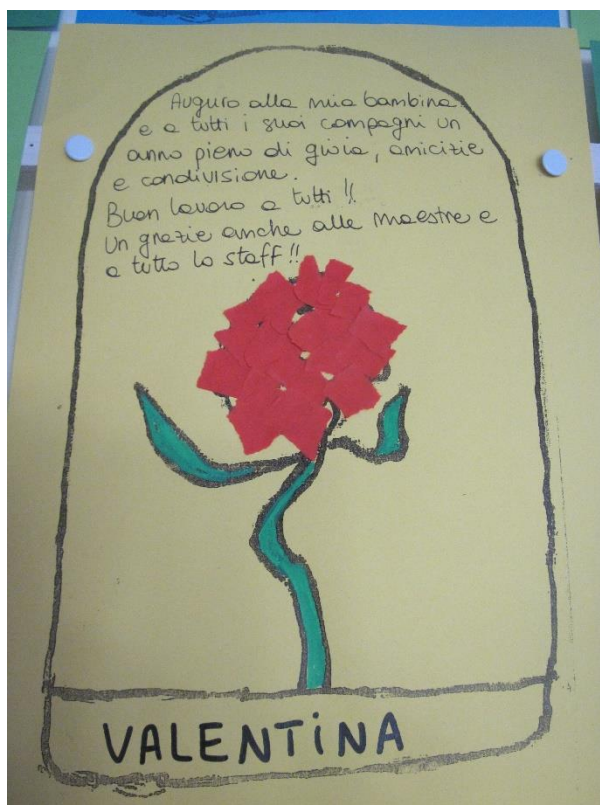 Auguro alla mia bambina
e a tutti i suoi compagni un
anno pieno di gioia, amicizie
e condivisione.
Buon lavoro a tutti !!
Un grazie anche alle maestre e
a tutto lo staff !!
VALENTINA